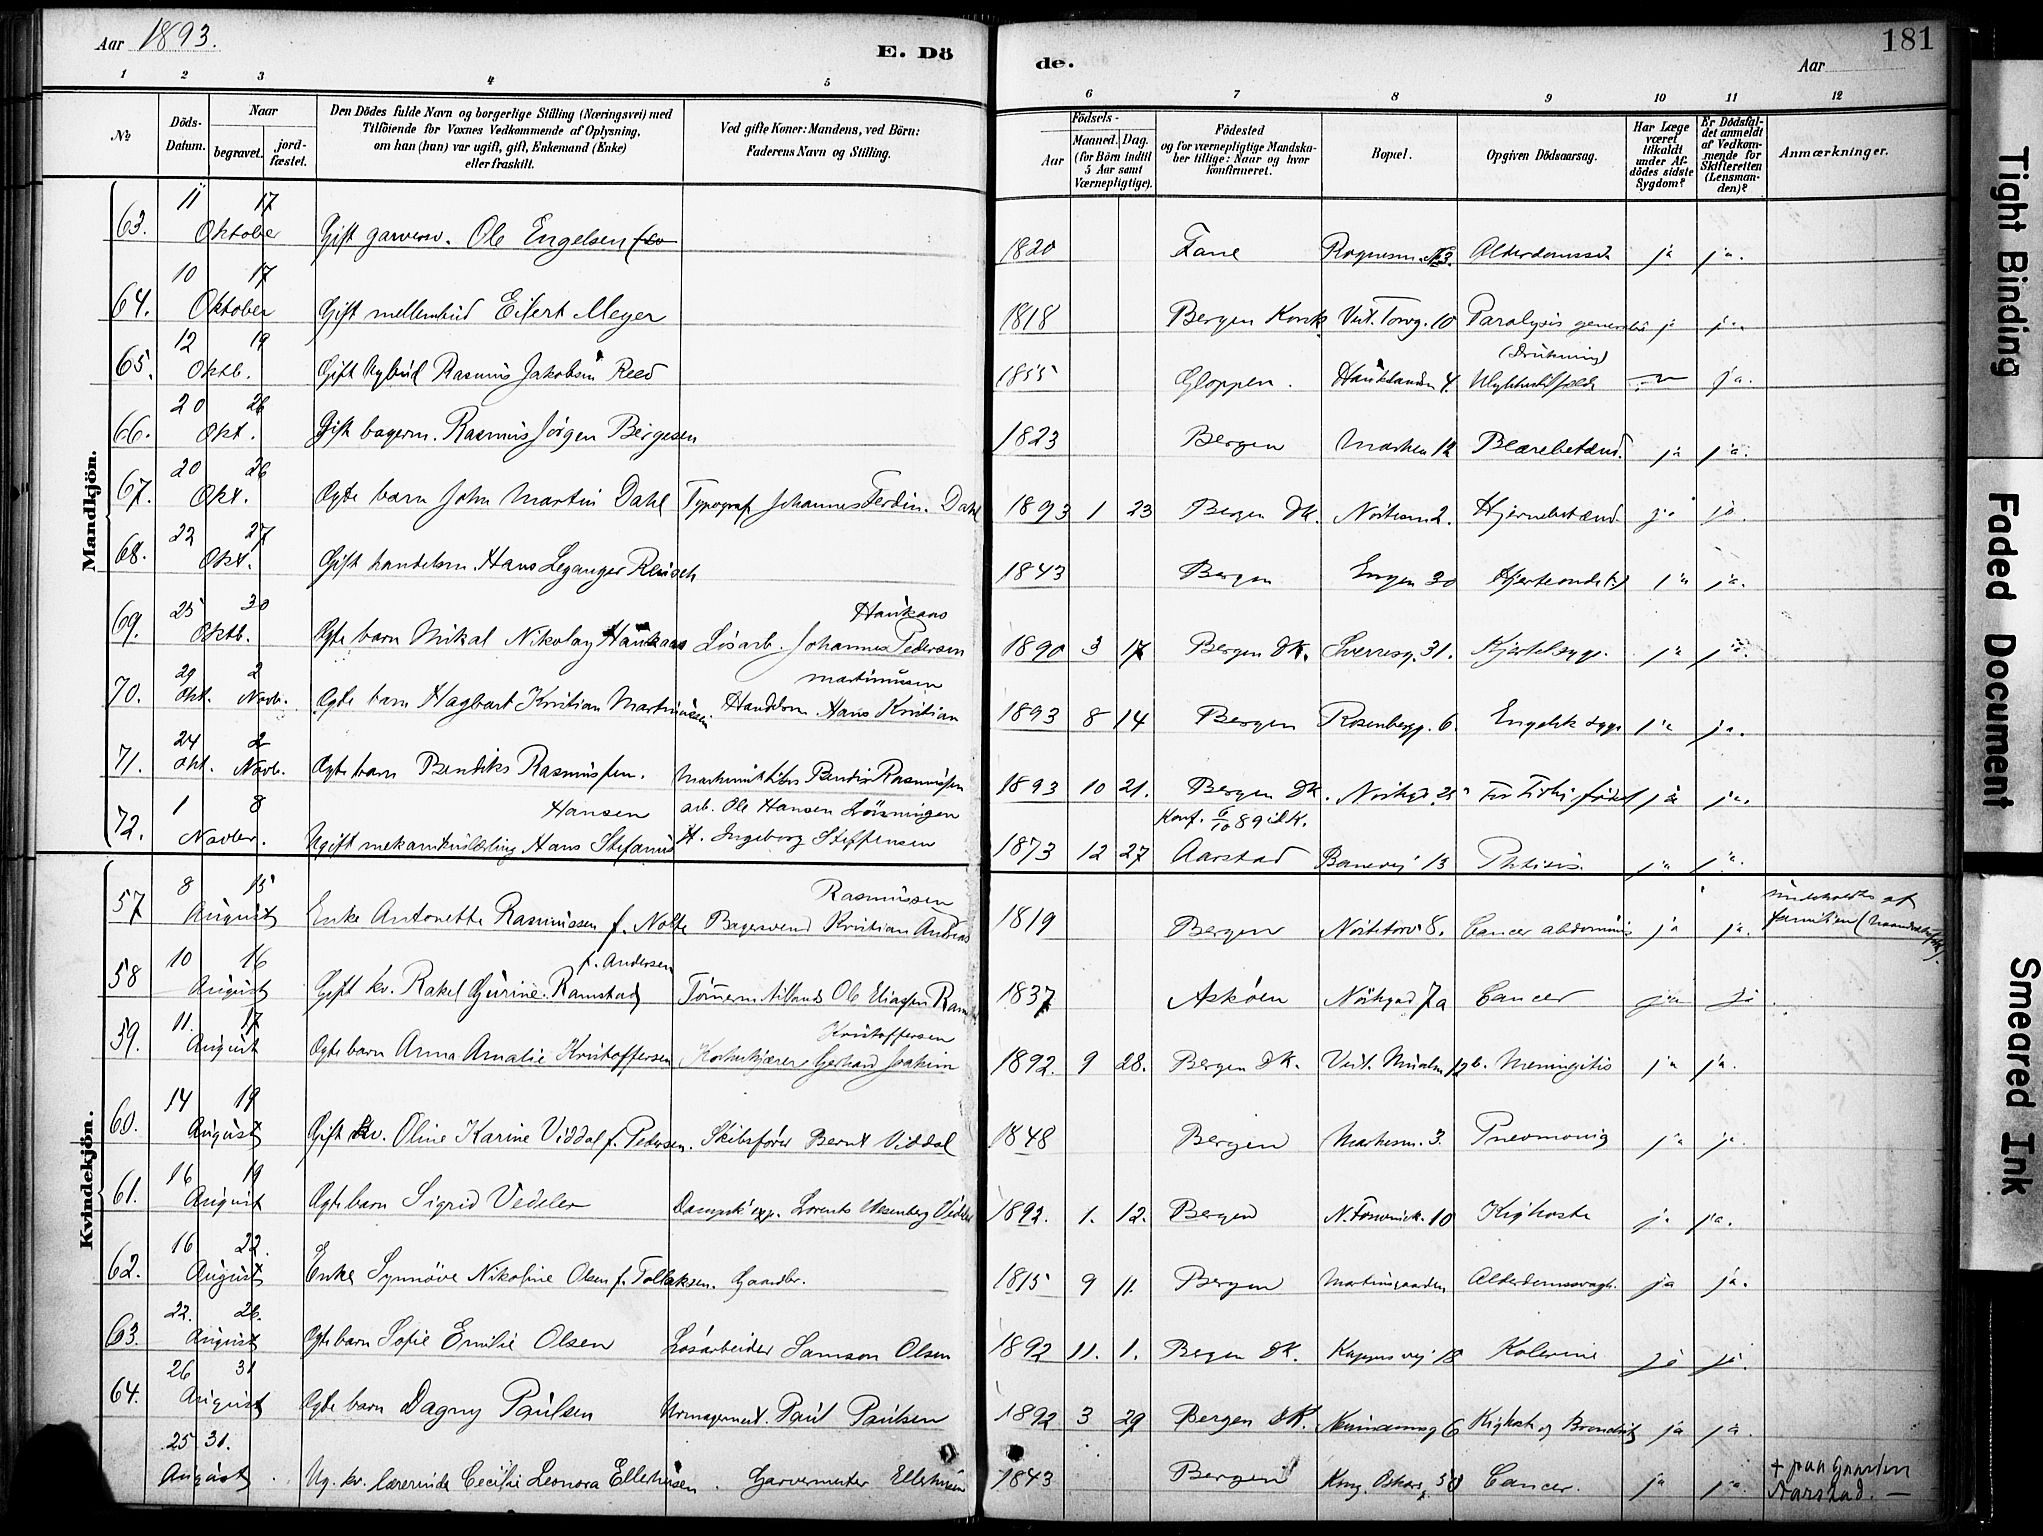 Aar 1893.
E. Dö
de.
Aar
181
1 2 3 4 5
6 7 8 9 10 11 12
№
Döds-
Datum.
Naar
begravet.
jord-
fæstet.
Den Dödes fulde Navn og borgerlige Stilling (Næringsvei) med
Tilföiende for Voxnes Vedkommende af Oplysning,
om han (hun) var ugift, gift, Enkemand (Enke)
eller fraskilt.
Ved gifte Koner: Mandens, ved Börn:
Faderens Navn og Stilling.
Födsels-
Aar
Maaned. Dag.
(for Börn indtil
5 Aar samt
Værnepligtige).
Födested
og for værnepligtige Mandska-
ber tillige: Naar og hvor
konfirmeret.
Bopæl.
Opgiven Dödsaarsag.
Har Læge
været
tilkaldt
under Af-
dödes sidste
Sygdom?
Er Dödsfal-
det anmeldt
af Vedkom-
mende for
Skifteretten
(Lensman-
den)?
Anmærkninger.
Mandkjön.
63. 11 17 Oktober Gift garversv. Ole Engelsen 1820 Fane № 3. ja ja.
64. 10 17 Oktober Gift mellembud Eilert Meyer 1818 Bergen Korsk. Vest. Torvg. 10 Paralysis generalis ja ja
65. 12 19 Oktb. Gift bybud Rasmus Jakobsen Reed 1855 Gloppen. 4. (Drukning) Ulykkestilfælde — ja.
66. 20 26 Okt. Gift bagerm. Rasmus Jørgen Børgesen 1823 Bergen Marken 12 Blærebetænd. ja ja.
67. 20 26 Okt. Ægte barn John Martin Dahl Typograf Johannes Ferdin. Dahl 1893 1 23 Bergen DK. 2. Hjernebetænd ja ja.
68. 22 27 Okt. Gift handelsm. Hans Leganger Reusch 1843 Bergen Engen 30 ja ja.
69. 25 30 Oktb. Ægte barn Mikal Nikolay Haukaas Løsarb. Johannes Pedersen Haukaas 1890 3 17 Bergen DK. Sverresg. 31. Kjertelsyge. ja ja.
70. 29 Okt. 2 Novb. Ægte barn Hagbart Kristian Martinussen Handelsm. Hans Kristian Martinussen 1893 8 14 Bergen Rosenbergg. 6. Engelsk syge ja ja.
71. 24 Okt. 2 Novb. Ægte barn Bendiks Rasmussen. Bendix Rasmussen 1893 10 21. Bergen DK. For tidlig født ja ja.
72. 1 8 Novbr. Ugift Hans Stefanus Hansen arb. Ole Hansen
H. Ingeborg Steffensen 1873 12 27 Konf. 6/10 89 i DK. Aarstad 13 Phtisis. ja ja.
Kvindekjön.
57 8 15 August Enke Antonette Rasmussen f. Nolte Bagersvend Kristian Andreas Rasmussen 1819 Bergen Nøstetorv 8. Cancer abdominis ja ja. underholdtes af
familien
58 10 16 August Gift kv. Rakel Gurine Ramstad f. Andersen Ole Eliassen 1837 Askøen 7a Cancer ja ja
59. 11. 17 August Ægte barn Anna Amalie Kristoffersen Gerhard Joakim Kristoffersen 1892. 9 28. Bergen DK. Meningitis ja ja.
60. 14 19 August Gift kv. Oline Karine Viddal f. Pedersen. Skibsfører Bernt Viddal 1848 Bergen 3. Pneomonia ja ja.
61. 16 19 August Ægte barn Sigrid Vedeler Dampsk. exp. Lorents Wesenberg Vedeler 1892. 1. 12. Bergen 10 Kighoste ja ja.
62. 16 22. August Enke Synnøve Nikoline Olsen f. Tollaksen. Gaardbr. 1815 9 11. Bergen Alderdomssvagh. ja ja.
63. 22. 26. August Ægte barn Sofie Emilie Olsen Løsarbeider Samson Olsen 1892 11. 1. Bergen DK. 18 Kolerine ja ja.
64. 26 31 August Ægte barn Dagny Paulsen Urmagermest. Paul Paulsen 1892 3 29 Bergen DK. 6 Kighoste og Bronchit ja ja
25 31. August Ug. kv. lærerinde Cecilie Leonora Ellerhusen. Garvermester Ellerhusen 1843 Bergen Kong Oskars g. 50 Cancer. ja ja. + paa Gaarden
Aarstad. —
Tight Binding
Faded Document
Smeared Ink